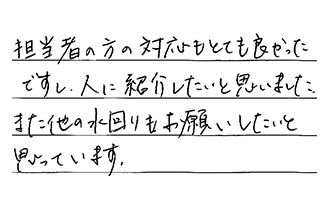 担当者の方の対応もとても良かった
ですし、人に紹介したいと思いました。
また他の水回りもお願いしたいと
思っています。